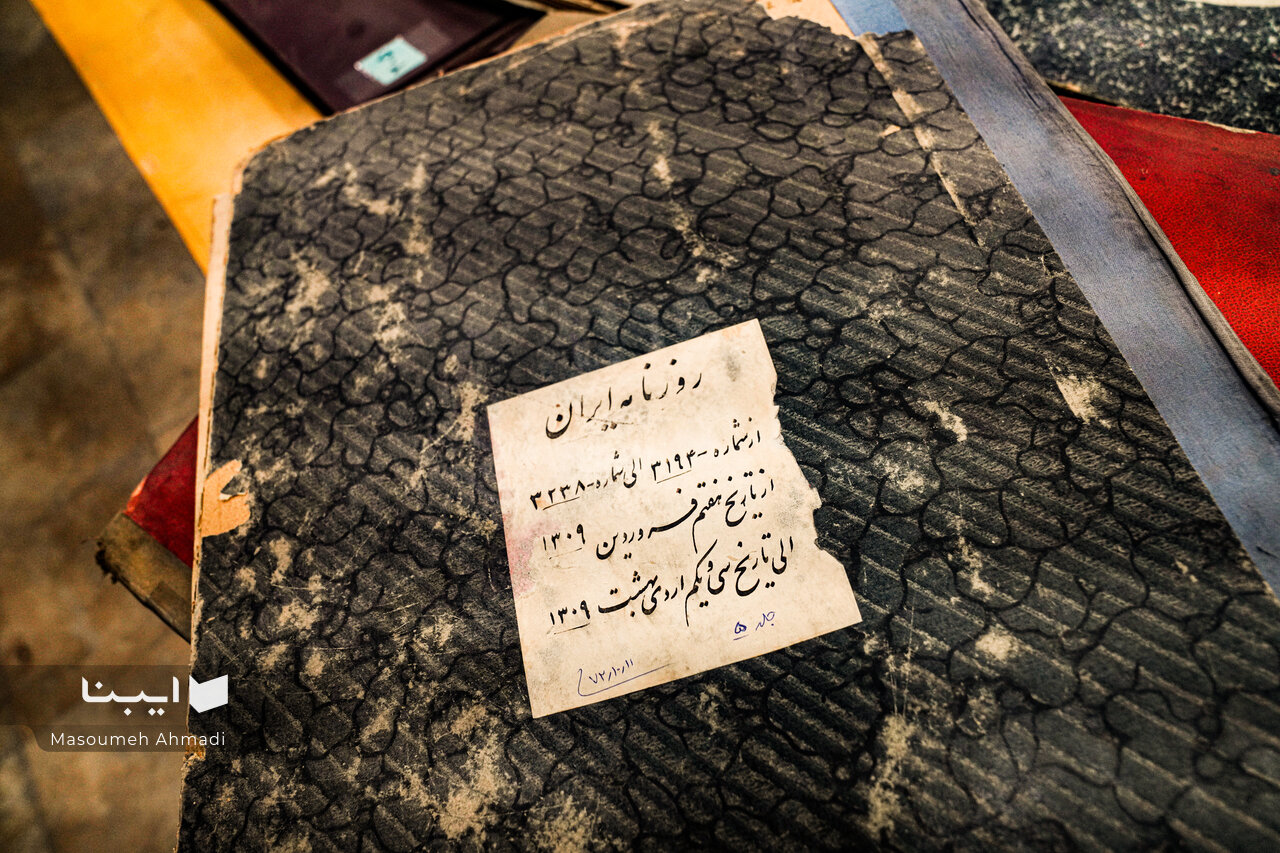 روزنامه ایران
از شماره -۳۱۹۴ الی شماره-۳۲۳۸
از تاریخ هفتم فروردین ۱۳۰۹
الی تاریخ سی و یکم اردیبهشت ۱۳۰۹
جلد ۵
ایبنا
Masoumeh Ahmadi